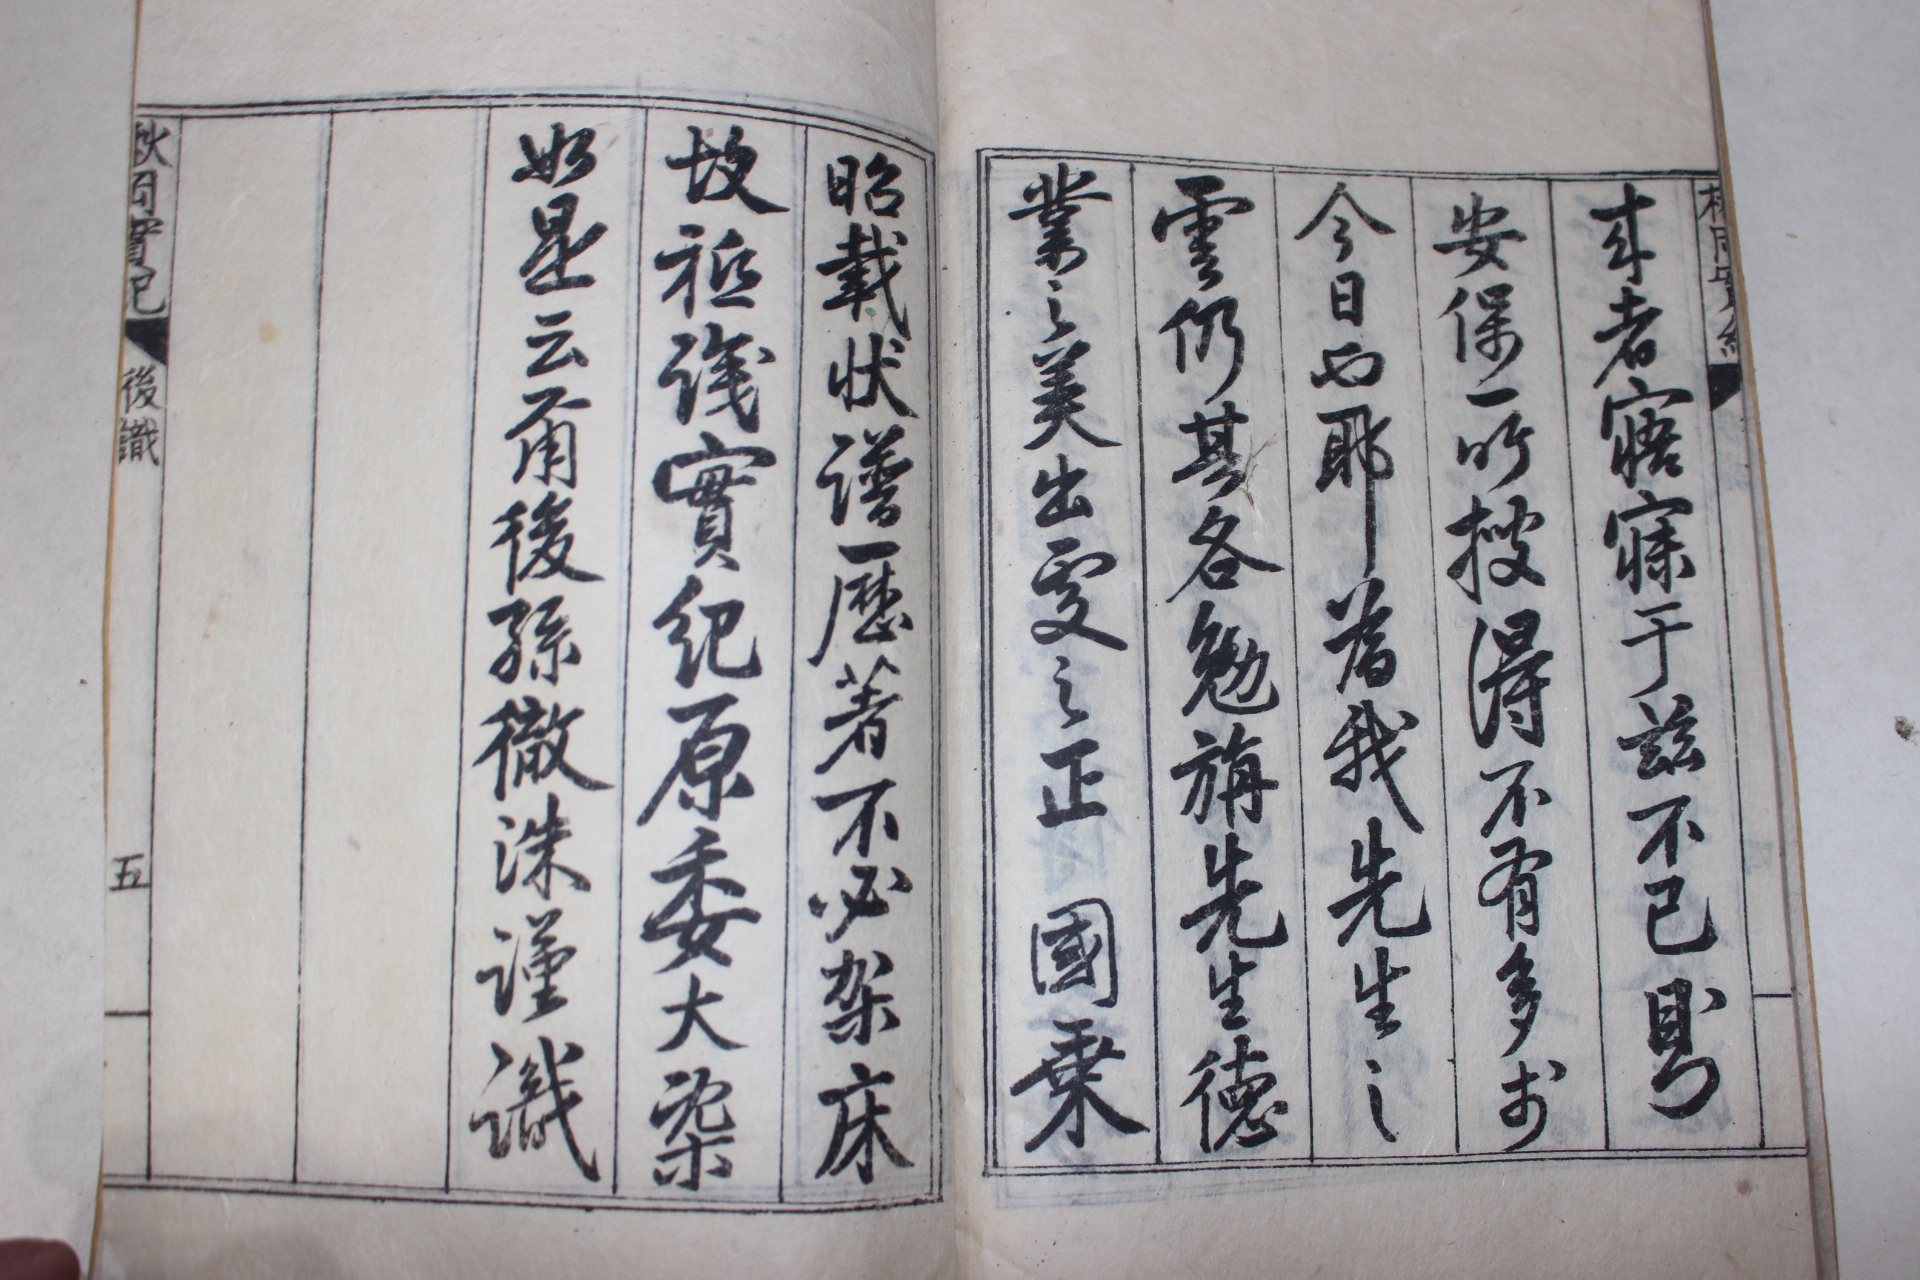 來者寤寐于玆不已則
安保一所搜得不有多於
今日也耶旹我先生之
雲仍其各勉旃先生德
業之美出處之正 國乘
昭載狀譜歷著不必架床
故祗識實紀原委大槩
如是云爾後孫徹洙謹識
秋岡實紀 後識 五